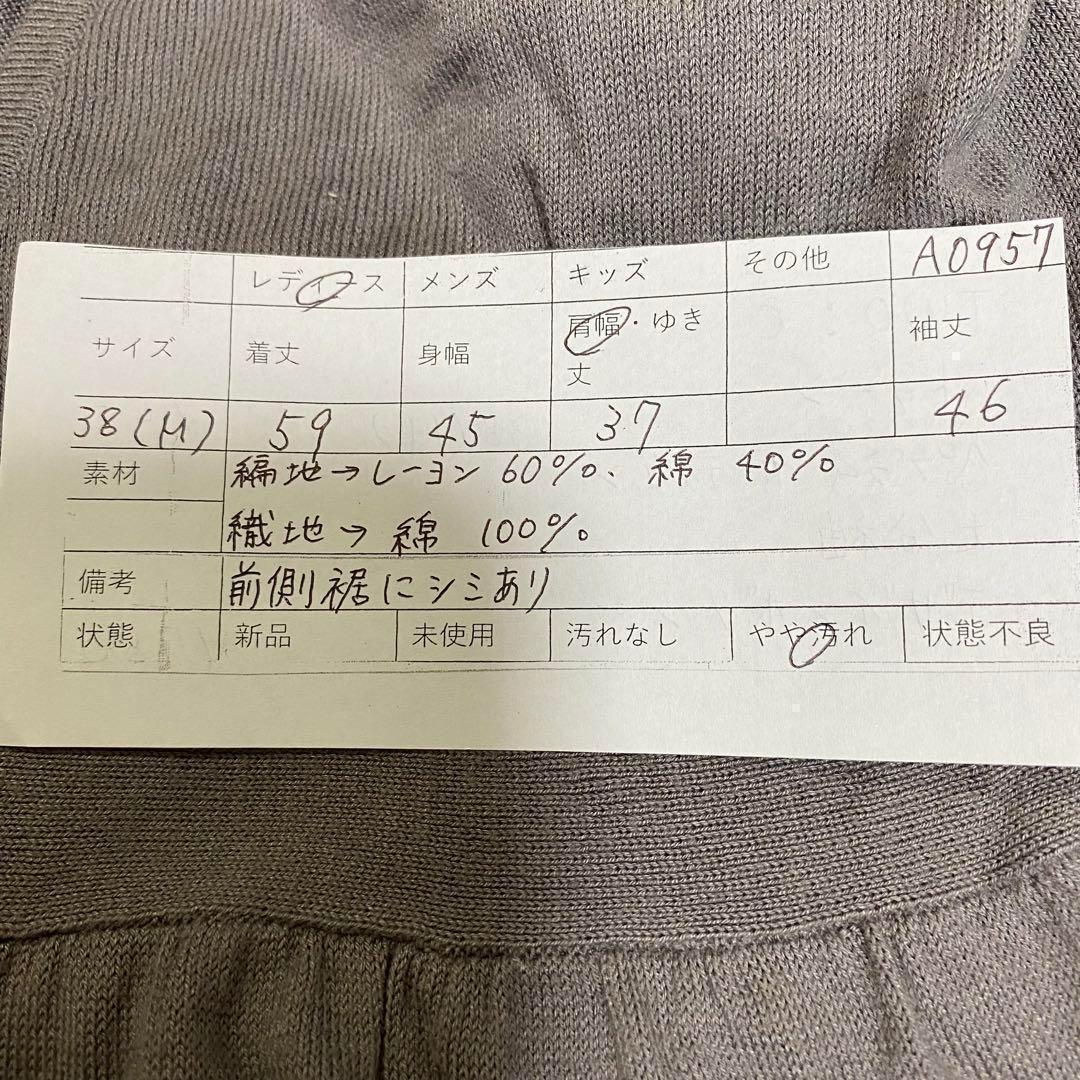 レディース メンズ キッズ その他 A0957
サイズ 着丈 身幅 肩幅・ゆき丈 袖丈
38(M) 59 45 37 46
素材 編地→レーヨン 60%、綿 40%
織地→綿 100%
備考 前側裾にシミあり
状態 新品 未使用 汚れなし やや汚れ 状態不良